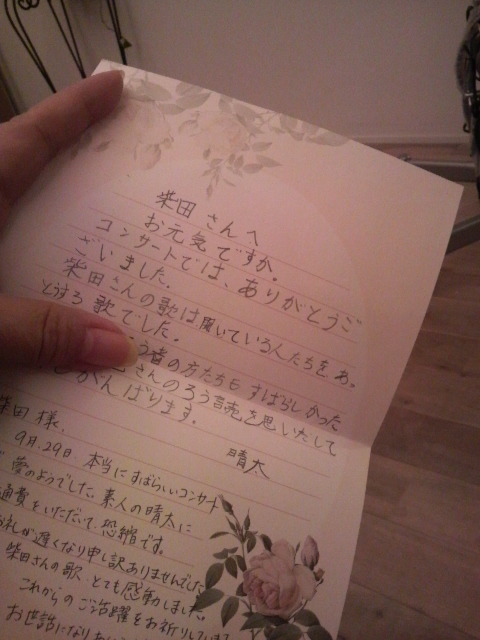 柴田さんへ
お元気ですか。
コンサートでは、ありがとうご
ざいました。
柴田さんの歌は聞いている人たちをあっ
とうする歌でした。
う者の方たちもすばらしかった
さんのろう読を思いだして
がんばります。
晴太
柴田様、
9月29日 本当にすばらしいコンサート
夢のようでした。素人の晴太に
通費をいただいて、恐縮です。
お礼が遅くなり申し訳ありませんでした。
柴田さんの歌、とても感動しました。
これからのご活躍をお祈りしています
お世話になりあ